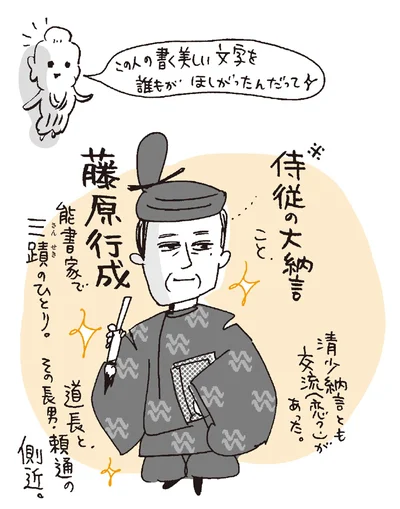 この人の書く美しい文字を
誰もが ほしがったんだって
※
侍従の大納言
こと
藤原行成
能書家で
さんせき
三蹟のひとり。
清少納言とも
交流(恋?)が
あった。
道長と、
その長男・頼通の
側近。